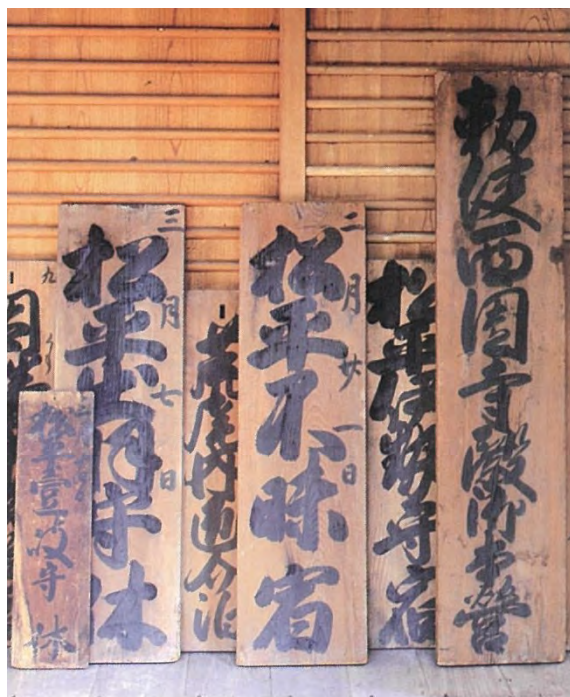 勅使西園寺殿御本営
松平伊勢守宿
二月廿一日
松平不昧宿
荒尾内匠介泊
三月七日
松平出羽守休
松平壹岐守休
九